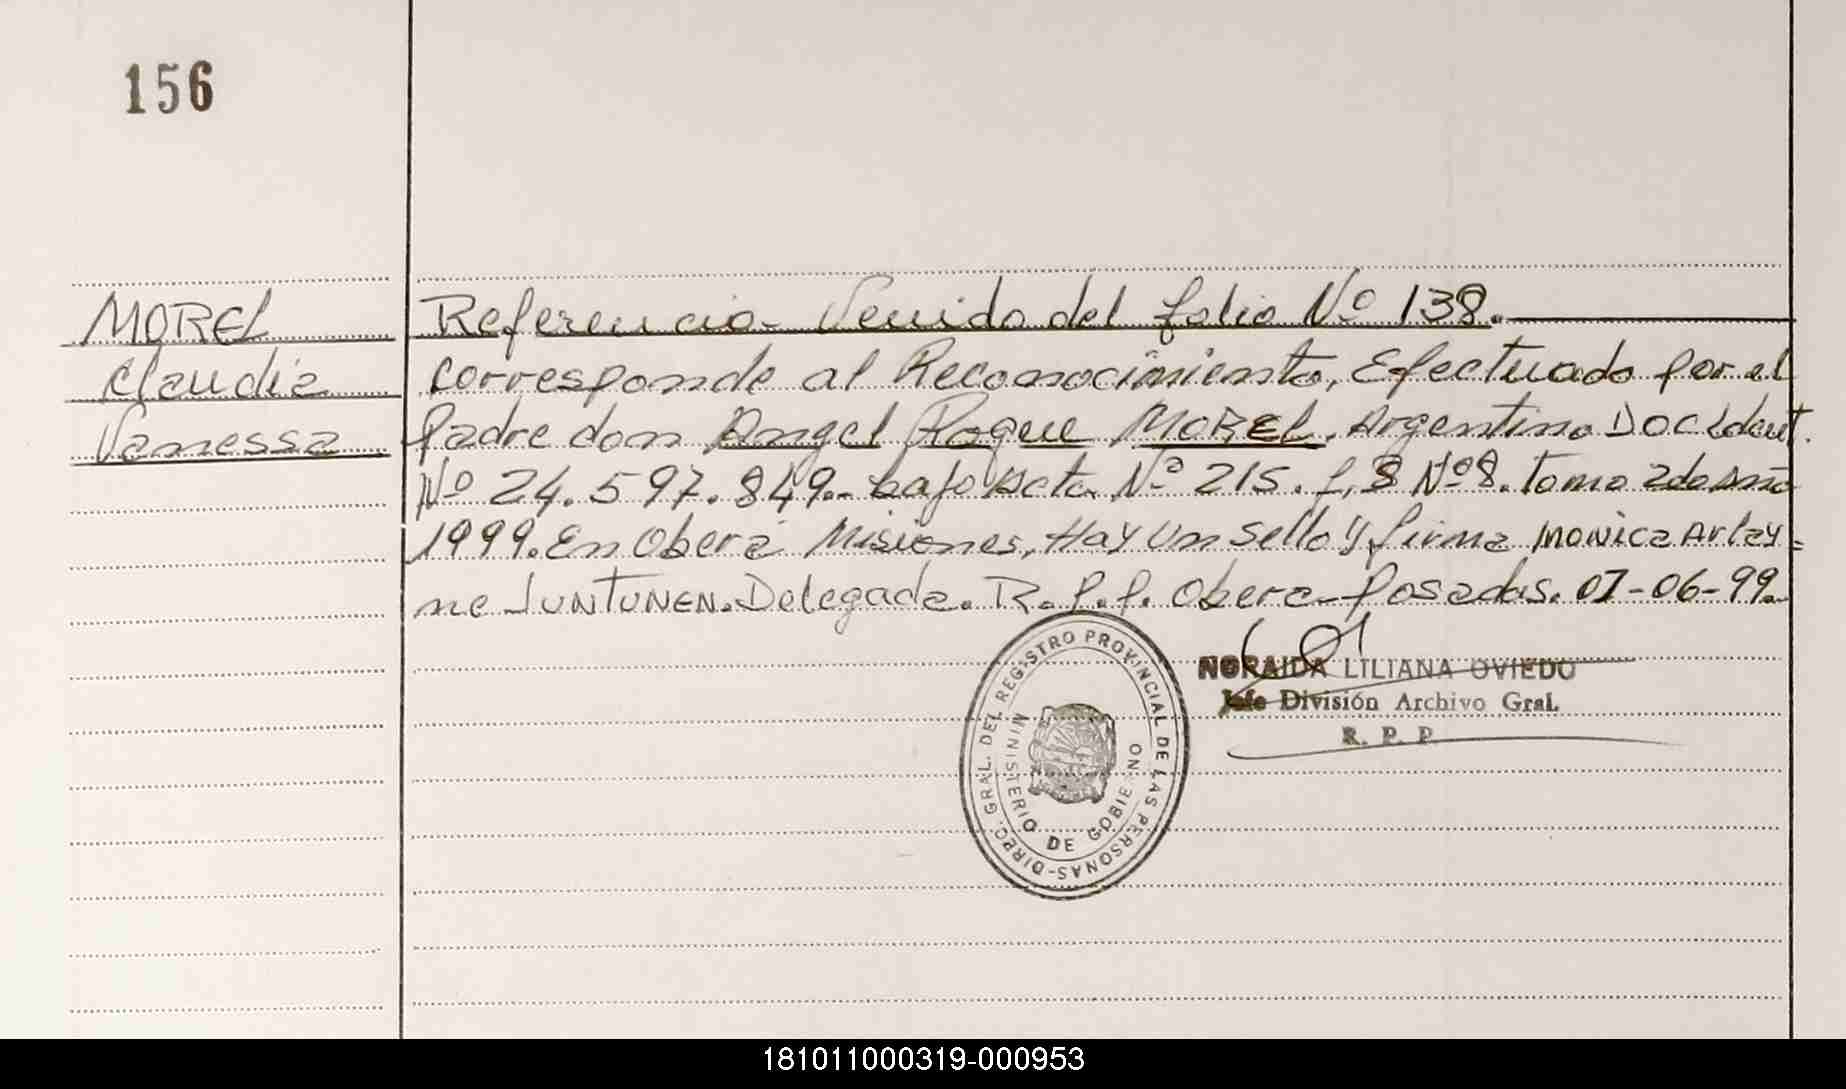 156
MOREL
Claudia
Vanessa
Referencia - Venido del folio Nº 138.
corresponde al Reconocimiento, Efectuado por el
Padre don Angel Roque MOREL, Argentino DOC Ident.
Nº 24.597.849.- bajo Acta Nº 215. f, 8 Nº 8. tomo 2do Año
1999. En Oberá Misiones, Hay un Sello y firma MONICA Arlay-
ne JUNTUNEN. Delegada. R.P.P. Oberá - Posadas. 07-06-99.
DIREC. GRAL. DEL REGISTRO PROVINCIAL DE LAS PERSONAS-
MINISTERIO DE GOBIERNO
NORAIDA LILIANA OVIEDO
Jefe División Archivo Gral.
R. P. P.
181011000319-000953